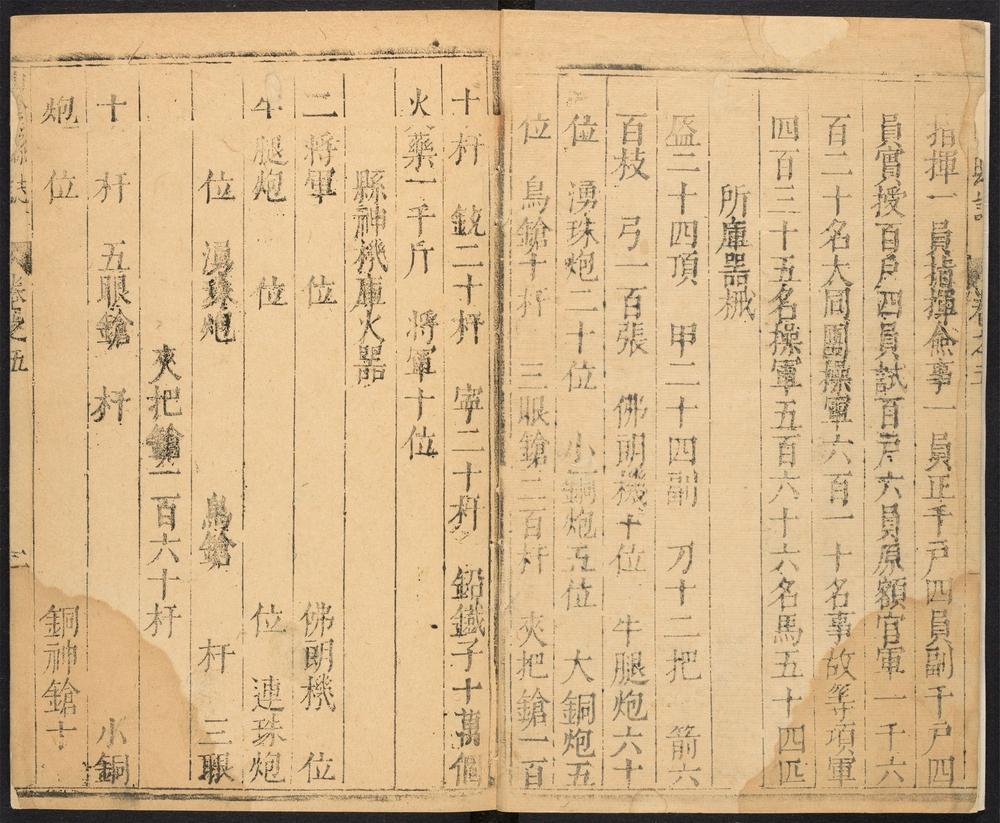 指揮一員指揮僉事一員正千戶四員副千戶四
員實授百戶四員試百戶六員原額官軍一千六
百二十名大同團操軍六百一十名事故等項軍
四百三十五名操軍五百六十六名馬五十四匹
所庫器械
盔二十四頂 甲二十四副 刀十二把 箭六
百枝 弓一百張 佛朗機十位 牛腿炮六十
位 湧珠炮二十位 小銅炮五位 大銅炮五
位 鳥鎗十杆 三眼鎗二百杆 夾把鎗一百
十杆 銃二十杆 二十杆 鉛鐵子十萬個
火藥一千斤 將軍十位
縣神機庫火器
二將軍 位 佛朗機 位
牛腿炮 位 位 連珠炮
位 湧珠炮 鳥鎗 杆 三眼
夾把鎗一百六十杆
十杆 五眼鎗 杆 小銅
炮 位 銅神鎗十
縣誌 卷之五 三